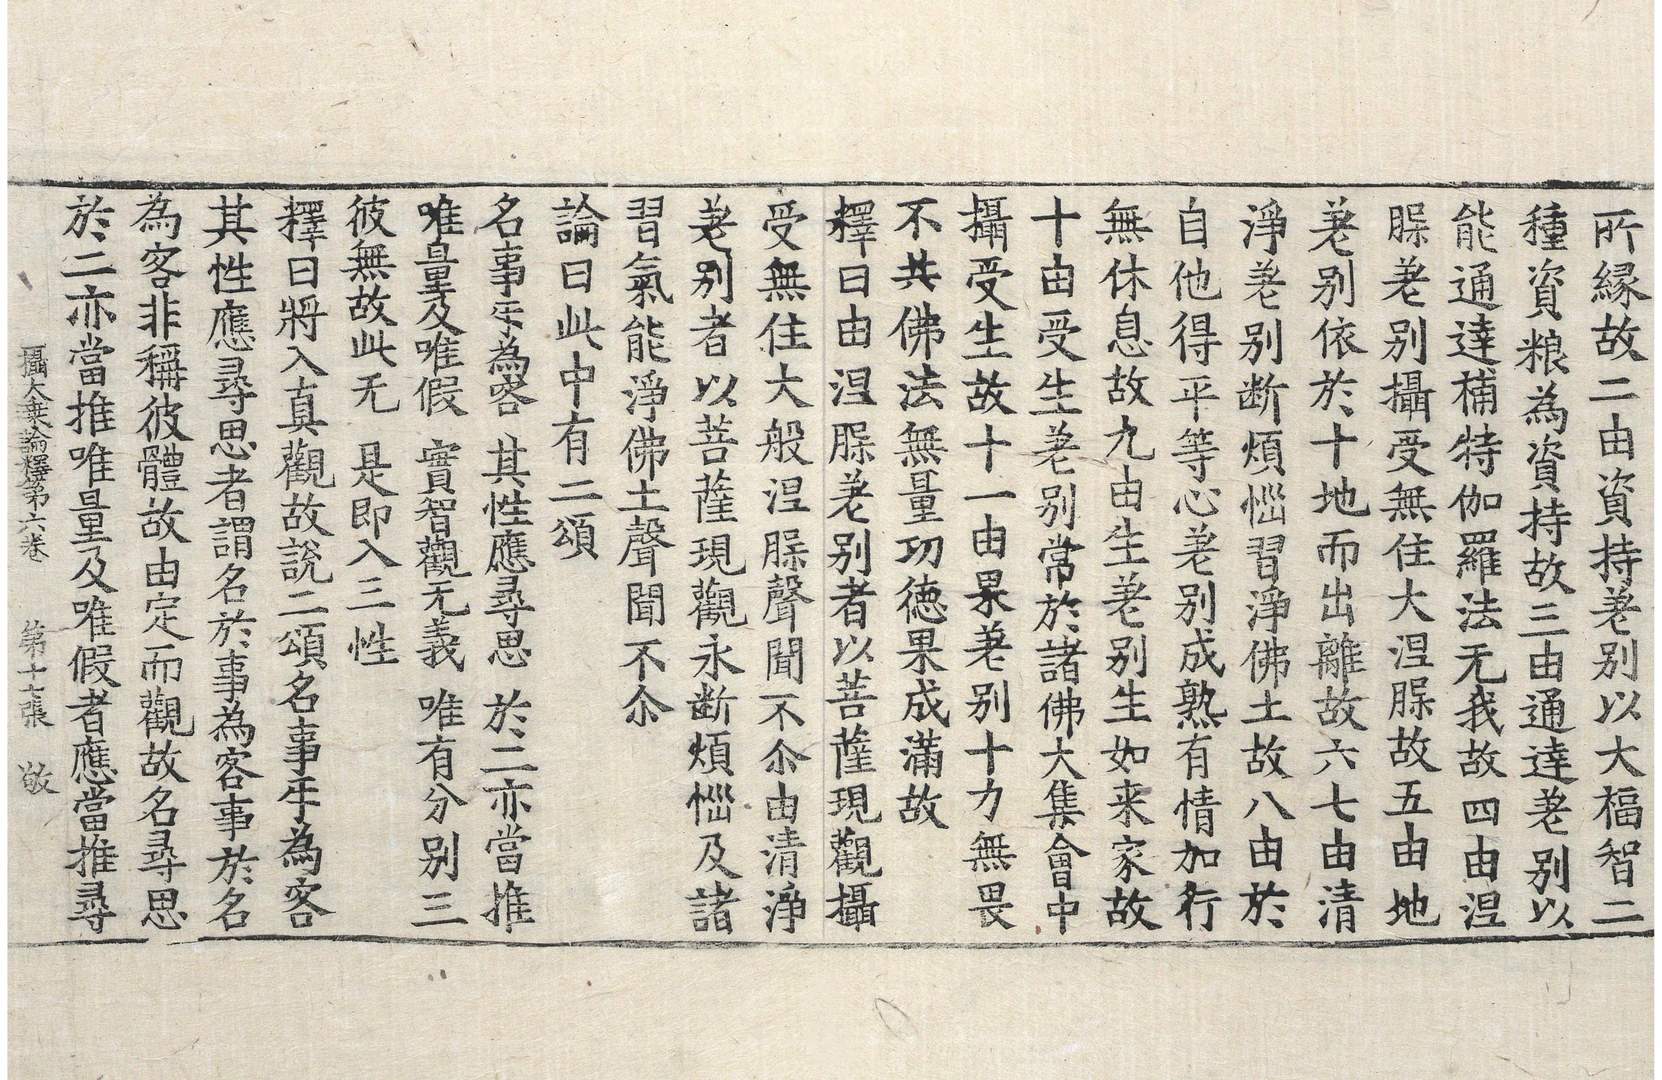 所縁故二由資持差別以大福智二
種資粮為資持故三由通達差別以
能通達補特伽羅法无我故四由涅
槃差別攝受無住大涅槃故五由地
差別依於十地而出離故六七由清
淨差別断煩惱習淨佛土故八由於
自他得平等心差別成熟有情加行
無休息故九由生差別生如来家故
十由受生差別常於諸佛大集會中
攝受生故十一由果差別十力無畏
不共佛法無量功徳果成滿故
釋曰由涅槃差別者以菩薩現觀攝
受無住大般涅槃聲聞不尒由清淨
差別者以菩薩現觀永断煩惱及諸
習氣能淨佛土聲聞不尒
論曰此中有二頌
名事㸦為客 其性應尋思 於二亦當推
唯量及唯假 實智觀无義 唯有分别三
彼無故此无 是即入三性
釋曰將入真觀故說二頌名事㸦為客
其性應尋思者謂名於事為客事於名
為客非稱彼體故由定而觀故名尋思
於二亦當推唯量及唯假者應當推尋
攝大乗論釋第六卷 第十七張 敬